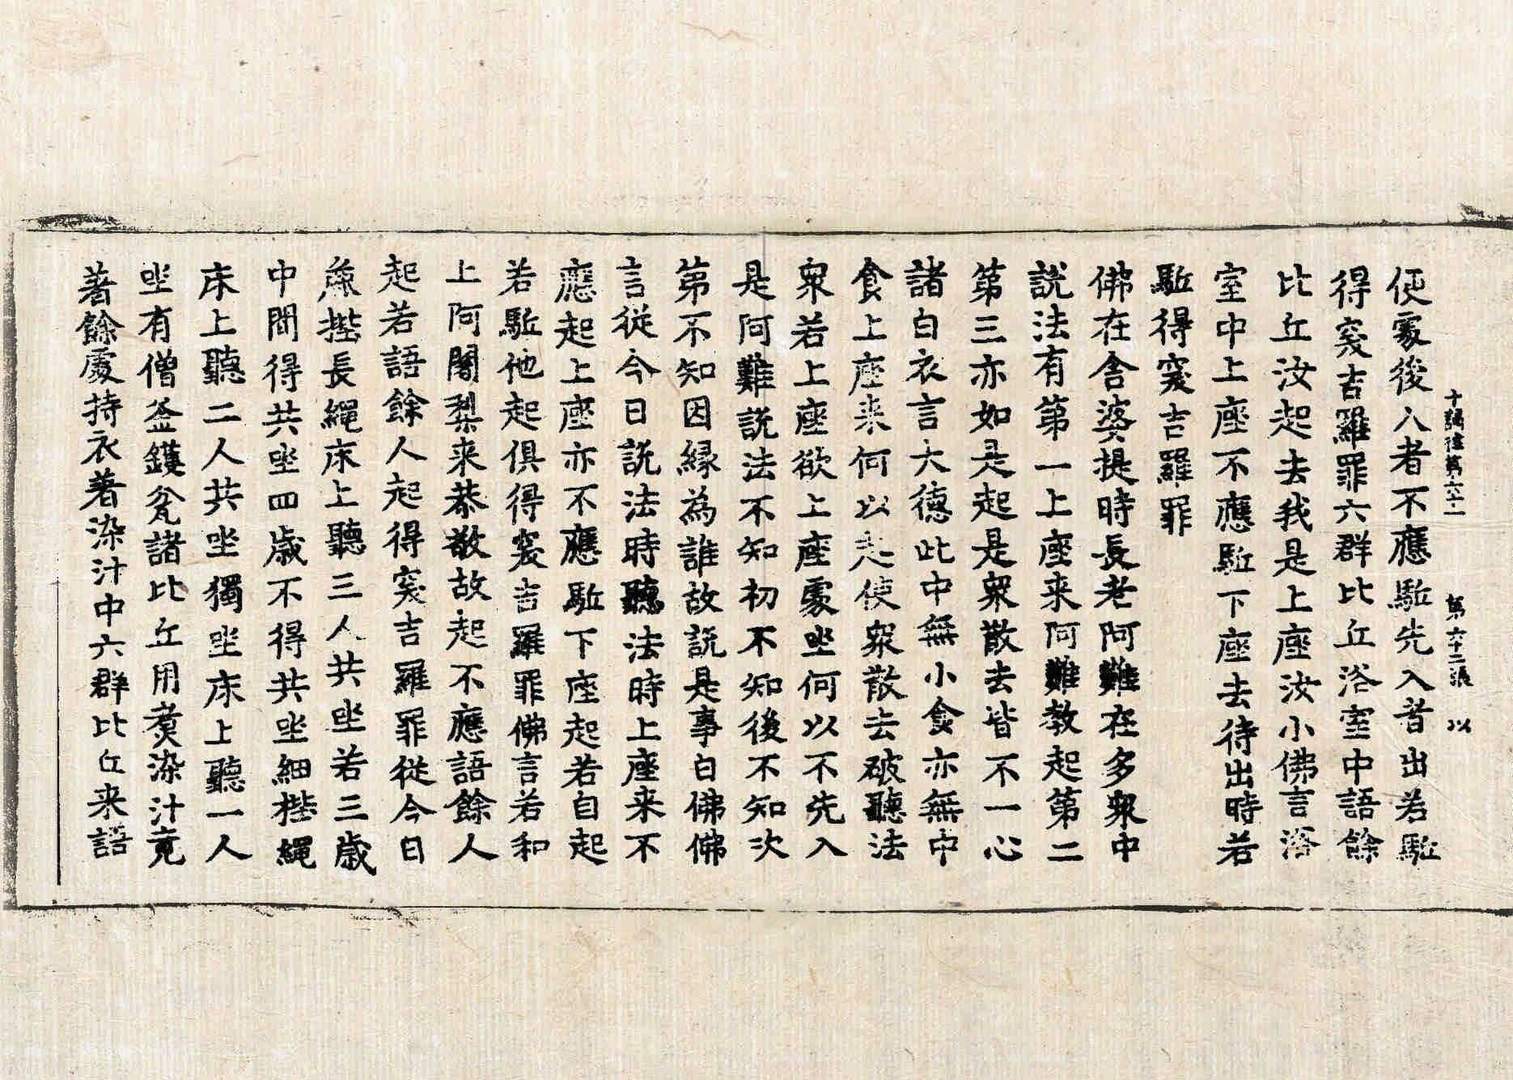 十誦律第六十一 第六十二張 以
便處後入者不應駈先入者出若駈
得突吉羅罪六群比丘浴室中語餘
比丘汝起去我是上座汝小佛言浴
室中上座不應駈下座去待出時若
駈得突吉羅罪
佛在舍婆提時長老阿難在多衆中
説法有第一上座来阿難教起第二
第三亦如是起是衆散去皆不一心
諸白衣言大德此中無小食亦無中
食上座来何以起使衆散去破聽法
衆若上座欲上座處坐何以不先入
是阿難説法不知初不知後不知次
第不知因縁為誰故説是事白佛佛
言從今日説法時聽法時上座来不
應起上座亦不應駈下座起若自起
若駈他起俱得突吉羅罪佛言若和
上阿闍梨来恭敬故起不應語餘人
起若語餘人起得突吉羅罪從今日
麁梐長繩床上聽三人共坐若三歳
中間得共坐四歳不得共坐細梐繩
床上聽二人共坐獨坐床上聽一人
坐有僧釜鑊瓫諸比丘用煮染汁竟
著餘處持衣著染汁中六群比丘来語